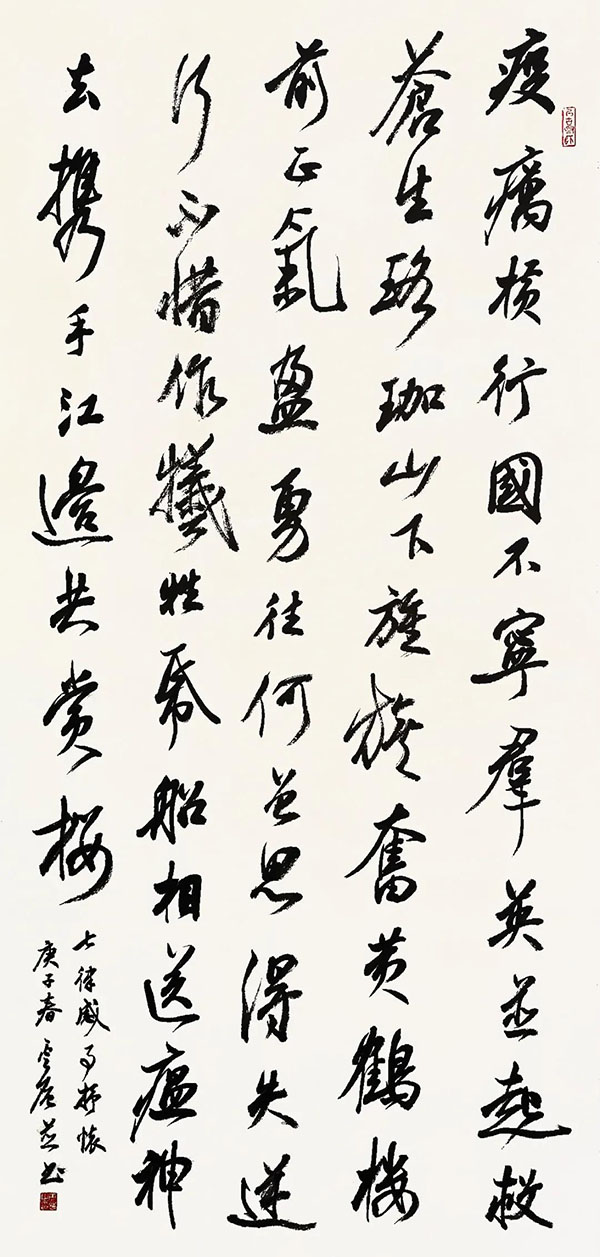 疫癘横行國不寧羣英並起救
蒼生珞珈山下旌旗奮黄鶴樓
前正氣盈勇往何曾思得失逆
行不惜作犧牲帋船相送瘟神
去携手江邊共賞櫻
七律感事抒懷
庚子春